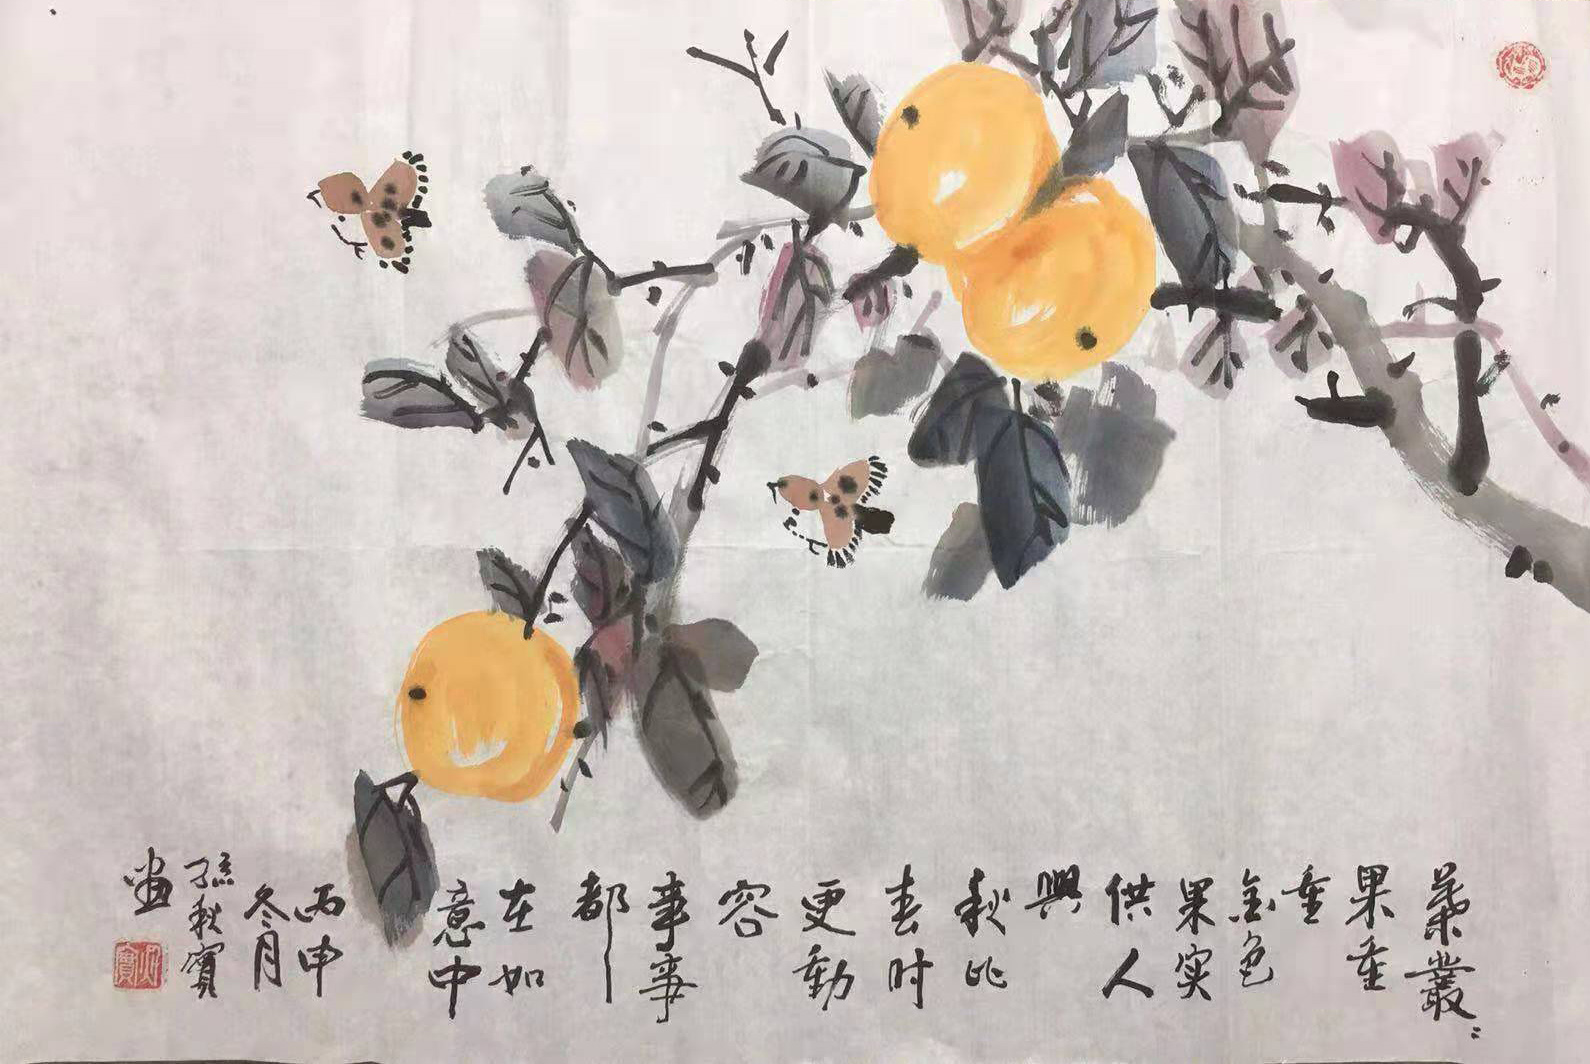 葉叢〻
果重
重
金色
果实
供人
興
秋比
春时
更動
容
事事
都
在如
意中
丙申
冬月
孫秋寶
画